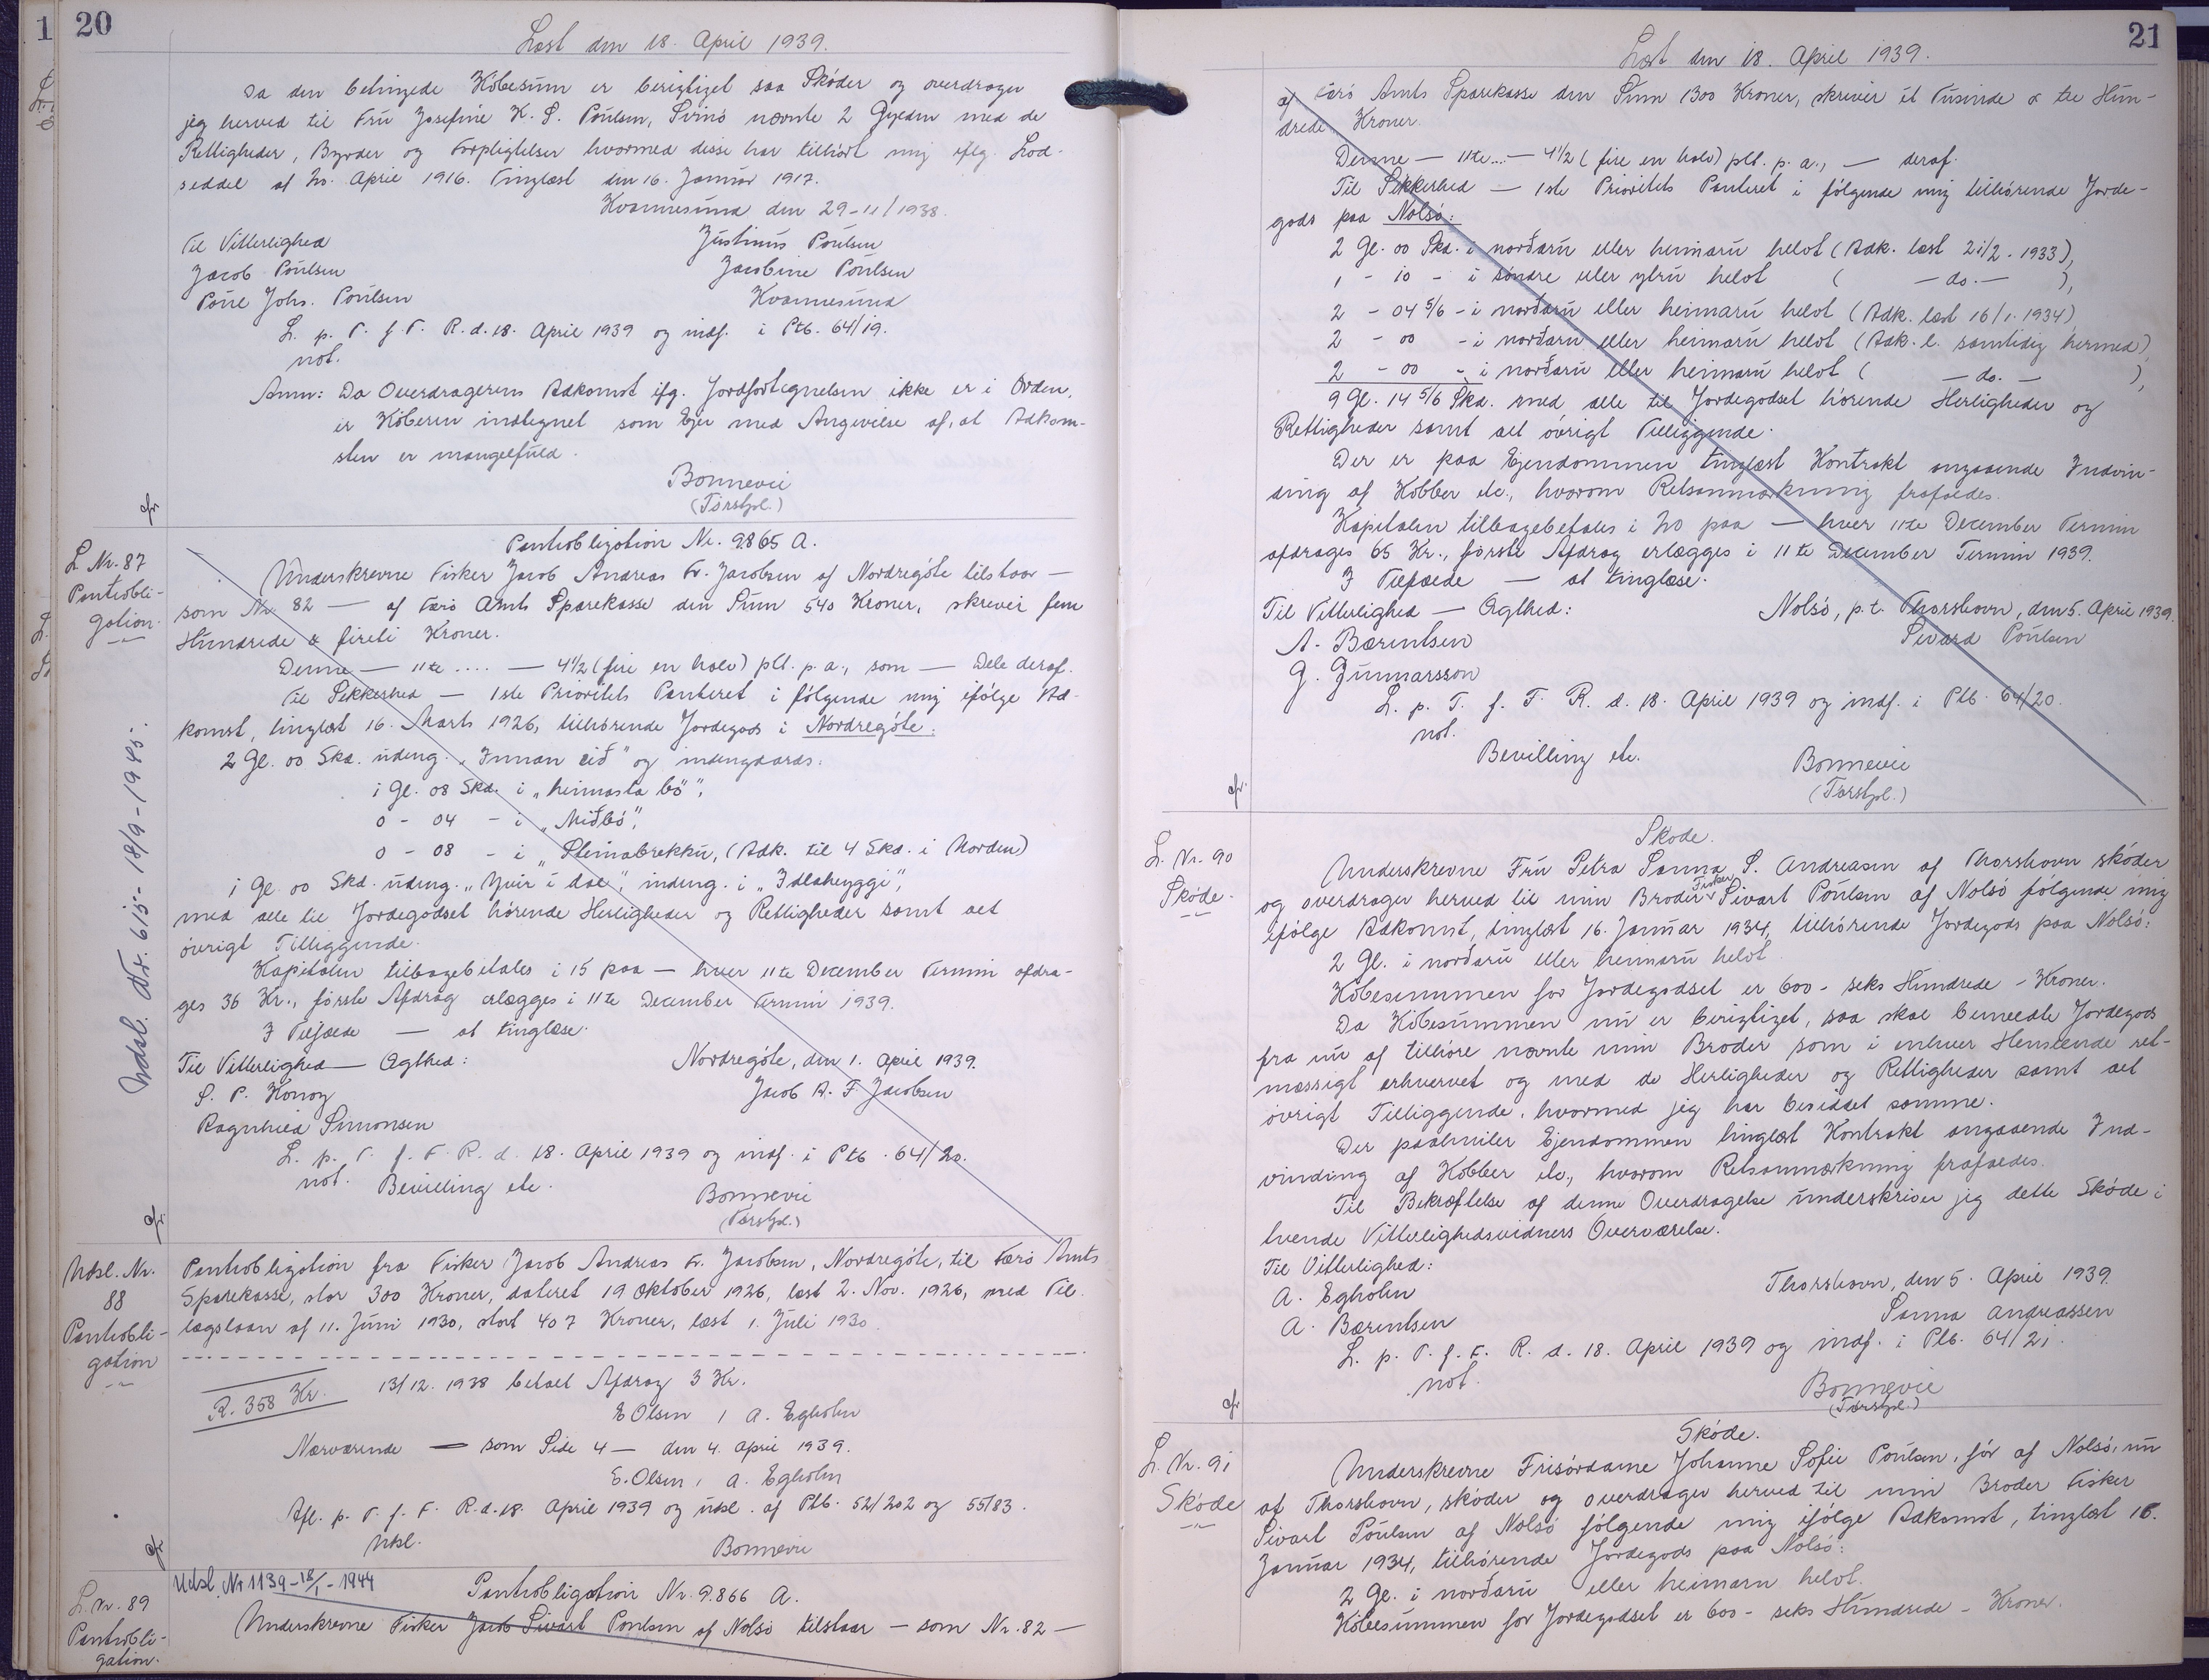 20
Læst den 18. April 1939.
Da den betingede Købesum er berigtiget saa Skøder og overdrager
jeg herved til Fru Josefine K. S. Poulsen, Svinø nævnte 2 Gyden med de
Rettigheder, Byrder og Forpligtelser hvormed disse har tilhørt mig iflg. Lod-
seddel af 20. April 1916. Tinglæst den 16. Januar 1917.
Kvannesund den 29-11/1938.
Til Vitterlighed
Justinus Poulsen
Jacob Poulsen
Jacobine Poulsen
Poul Johs. Poulsen
Kvannesund
L. p. T. f. F. R. d. 18. April 1939 og indf. i Ptb. 64/19.
not.
Anm: Da Overdragerens Adkomst ifg. Jordfortegnelsen ikke er i Orden,
er Køberen indtegnet som Ejer med Angivelse af, at Adkom-
sten er mangelfuld.
Bonnevie
(Færstpl.)
L Nr. 87
Pantobli-
gation.
Udsl. Nr. 615 - 18/9 - 1945.
Pantobligation Nr. 9865 A.
Underskrevne Fisker Jacob Andreas Fr. Jacobsen af Nordregøte tilstaar —
som Nr. 82 — af Færø Amts Sparekasse den Sum 540 Kroner, skriver fem
Hundrede & fireti Kroner.
Denne — 11te .... — 4½ (fire en halv) pCt. p. a., som — Dele deraf.
Til Sikkerhed — 1ste Prioritets Panteret i følgende mig ifølge Ad-
komst, tinglæst 16. Marts 1926, tilhørende Jordegods i Nordregøte:
2 Gl. 00 Skd. udeng. "Innan eið" og indengaards:
1 Gl. 08 Skd. i "heimasta bø",
0 - 04 - i "Miðbø",
0 - 08 - i "Steinabrekku, (Adk. til 4 Skd. i Norden)
1 Gl. 00 Skd. udeng. "Yvir i dal", indeng. i "Idlaheyggi",
med alle til Jordegodset hørende Herligheder og Rettigheder samt alt
øvrigt Tilliggende.
Kapitalen tilbagebetales i 15 paa — hver 11te December Termin afdra-
ges 36 Kr., første Afdrag erlægges i 11te December Termin 1939.
I Tilfælde — at tinglæse.
Til Vitterlighed — Ægthed:
Nordregøte, den 1. April 1939.
S. P. Konoy
Jacob A. F. Jacobsen
Ragnhild Simonsen
L. p. T. f. F. R. d. 18. April 1939 og indf. i Ptb. 64/20.
not.
Bevilling etc.
Bonnevie
(Færstpl.)
Udsl. Nr.
88
Pantobli-
gation
Pantobligation fra Fisker Jacob Andreas Fr. Jacobsen, Nordregøte, til Færø Amts
Sparekasse, stor 300 Kroner, dateret 19 Oktober 1926, læst 2. Nov. 1926, med Til-
lægslaan af 11. Juni 1930, stort 407 Kroner, læst 1. Juli 1930.
R. 358 Kr.
13/12. 1938 betalt Afdrag 3 Kr.
E Olsen / A. Egholm
Nærværende — som Side 4 — den 4. April 1939.
E. Olsen / A. Egholm
Afl. p. T. f. F. R. d. 18. April 1939 og udsl. af Ptb. 52/202 og 55/83.
Udsl.
Bonnevie
Udsl. Nr 1139 - 18/1 - 1944
L. Nr. 89
Pantobli-
gation.
Pantobligation Nr. 9.866 A.
Underskrevne Fisker Jacob Sivart Poulsen af Nolsø tilstaar — som Nr. 82 —
21
Læst den 18. April 1939.
af Færø Amts Sparekasse den Sum 1300 Kroner, skriver et Tusinde & tre Hun-
drede Kroner.
Denne — 11te ... — 4½ (fire en halv) pCt. p. a., — deraf.
Til Sikkerhed — 1ste Prioritets Panteret i følgende mig tilhørende Jorde-
gods paa Nolsø:
2 Gl. 00 Skd. i norðaru eller heimaru helvt (Adk. læst 21/2. 1933),
1 - 10 - i søndre eller ytru helvt ( — do. — ),
2 - 04 5/6 - i norðaru eller heimaru helvt (Adk. læst 16/1. 1934)
2 - 00 - i norðaru eller heimaru helvt (Adk. l. samtidig hermed),
2 - 00 - i norðaru eller heimaru helvt ( — do. — ),
9 Gl. 14 5/6 Skd. med alle til Jordegodset hørende Herligheder og
Rettigheder samt alt øvrigt Tilliggende.
Der er paa Ejendommen tinglæst Kontrakt angaaende Indvin-
ding af Kobber etc., hvorom Retsanmærkning frafaldes.
Kapitalen tilbagebetales i 20 paa — hver 11te December Termin
afdrages 65 Kr., første Afdrag erlægges i 11te December Termin 1939.
I Tilfælde — at tinglæse.
Til Vitterlighed — Ægthed:
Nolsø, p.t. Thorshavn, den 5. April 1939.
A. Bærentsen
Sivard Poulsen
G. Gunnarsson
L. p. T. f. F. R. d. 18. April 1939 og indf. i Ptb. 64/20.
not.
Bevilling etc.
Bonnevie
(Færstpl.)
L. Nr. 90
Skøde.
Skøde.
Underskrevne Fru Petra Sanna S. Andreasen af Thorshavn skøder
og overdrager herved til min Broder Fisker Sivart Poulsen af Nolsø følgende mig
ifølge Adkomst, tinglæst 16. Januar 1934, tilhørende Jordegods paa Nolsø:
2 Gl. i norðaru eller heimaru helvt.
Købesummen for Jordegodset er 600 - seks Hundrede - Kroner.
Da Købesummen nu er berigtiget, saa skal bemeldte Jordegods
fra nu af tilhøre nævnte min Broder som i enhver Henseende ret-
mæssigt erhvervet og med de Herligheder og Rettigheder samt alt
øvrigt Tilliggende, hvormed jeg har besiddet samme.
Der paahviler Ejendommen tinglæst Kontrakt angaaende Ind-
vinding af Kobber etc., hvorom Retsanmærkning frafaldes.
Til Bekræftelse af denne Overdragelse underskriver jeg dette Skøde i
tvende Vitterlighedsvidners Overværelse.
Til Vitterlighed:
Thorshavn, den 5. April 1939.
A. Egholm
Sanna Andreassen
A. Bærentsen
L. p. T. f. F. R. d. 18. April 1939 og indf. i Ptb. 64/21.
not.
Bonnevie
(Færstpl.)
L. Nr. 91
Skøde
Skøde.
Underskrevne Frisørdame Johanne Sofie Poulsen, før af Nolsø, nu
af Thorshavn, skøder og overdrager herved til min Broder Fisker
Sivart Poulsen af Nolsø følgende mig ifølge Adkomst, tinglæst 16.
Januar 1934, tilhørende Jordegods paa Nolsø:
2 Gl. i norðaru eller heimaru helvt.
Købesummen for Jordegodset er 600 - seks Hundrede - Kroner.